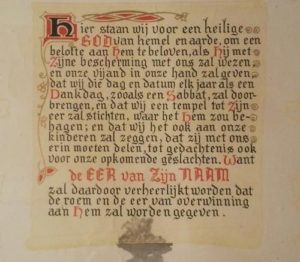 Hier staan wij voor een heilige
GOD van hemel en aarde, om een
belofte aan Hem te beloven, als Hij met
Zijne bescherming met ons zal wezen,
en onze vijand in onze hand zal geven,
dat wij die dag en datum elk jaar als een
Dankdag, zooals een Sabbat, zal door-
brengen, en dat wij een tempel tot Zijn
eer zal stichten, waar het Hem zou be-
hagen; en dat wij het ook aan onze
kinderen zal zeggen, dat zij met ons
erin moeten delen, tot gedachtenis ook
voor onze opkomende geslachten. Want
de EER van Zijn NAAM
zal daardoor verheerlijkt worden dat
de roem en de eer van overwinning
aan Hem zal worden gegeven.